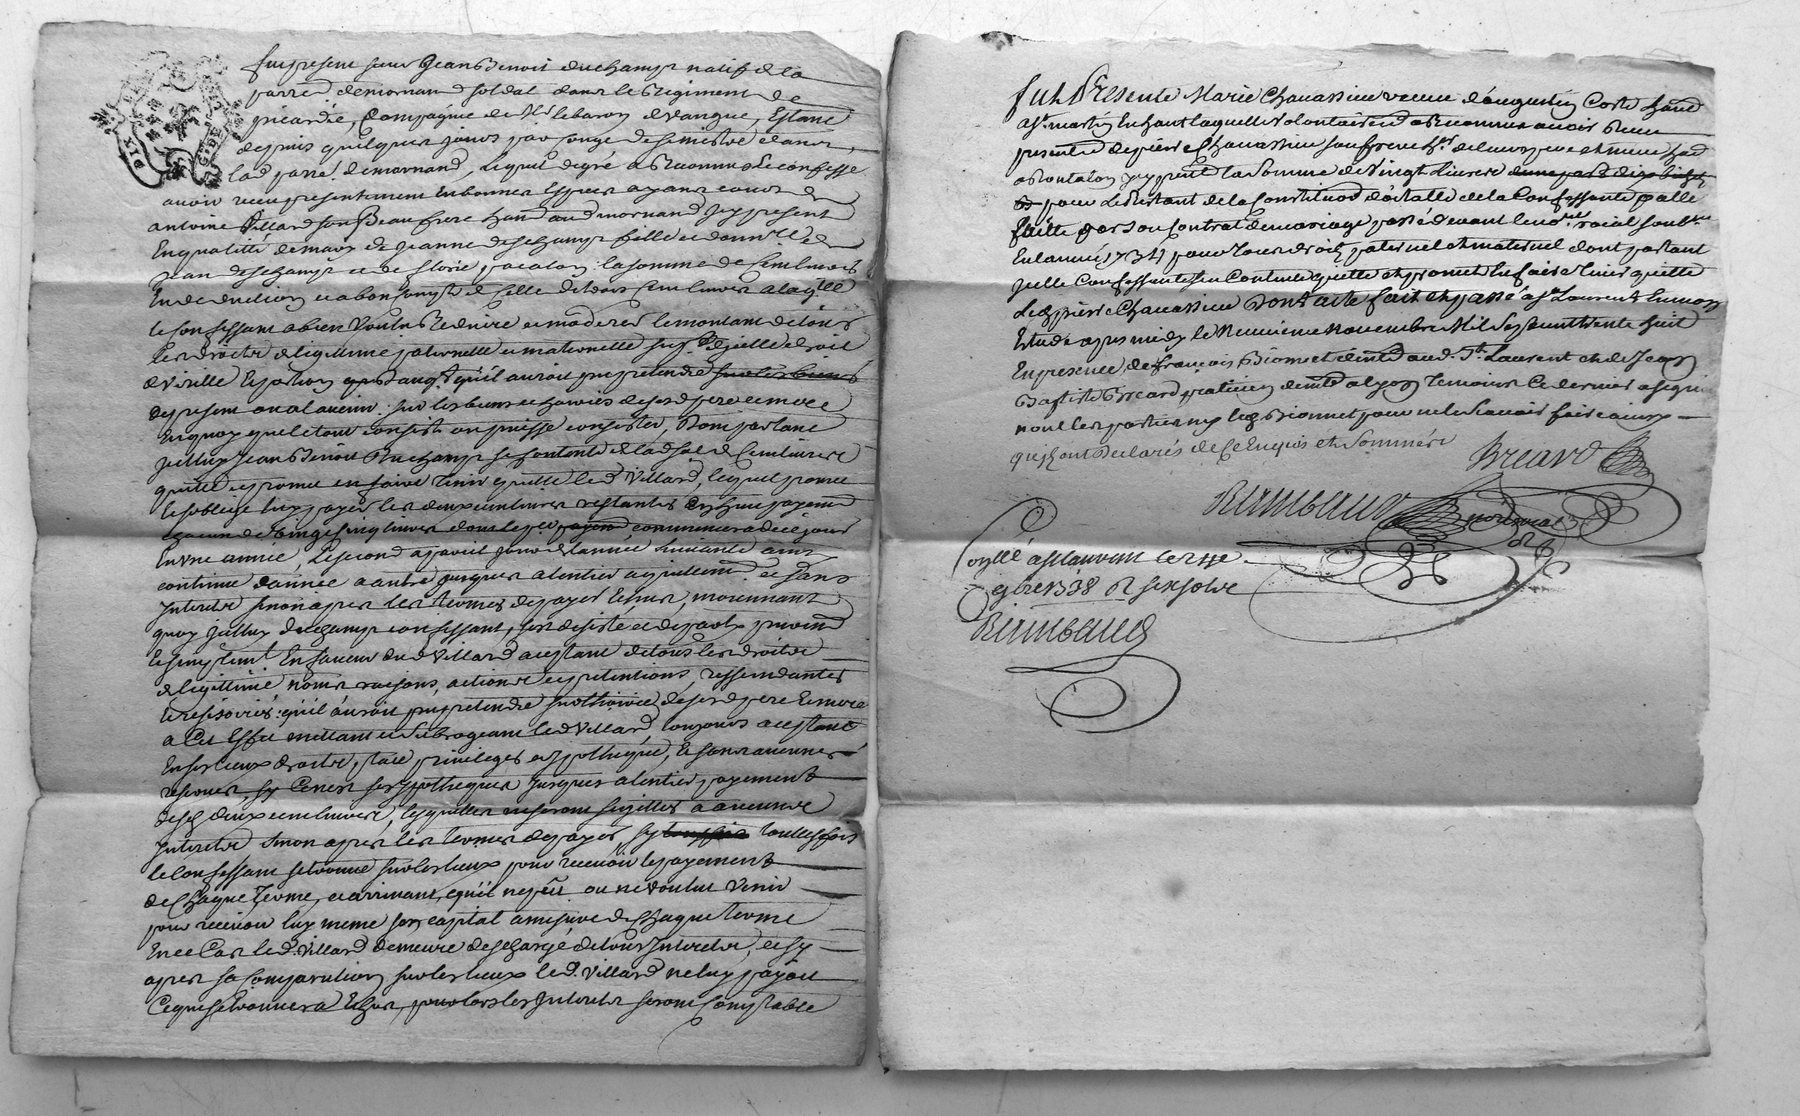 fut present sieur Jean Benoit duchamp natif de la
parr.e de mornand soldat dans le Regiment de
picardie, Compagnie de Mr le baron de vangue, Estant
depuis quelques jours par conge de semestre dans
lad parr.e de mornand, Lequel de gré a Reconnu & Confesse
avoir receu presentement en bonnes Especes ayant cours de
antoine Villard son Beau frere hant aud mornand Jcy present
En qualitté de mary de Jeanne deschamps fille et donn.re de
Jean deschamps et de Florie pacalon la somme de Cent livres
En deduction et a bon compte de Celle de trois Cent livres a laq.lle
le Confessant a bien voulu Reduire et moderer le montant de tous
les droits de legitime paternelle et maternelle sup.t d'jcelle droit
de virille Et portion qu'il auroit pu pretendre sur les biens
de present ou a l'avenir sur les biens et hoiries de sesd pere et mere
En quoy que le tout consiste ou puisse consister, Dont partant
Jcelluy Jean Benoit Duchamp se contente de lad so.e de Cent livres
quitte et promet en faire tenir quitte led Villard, lequel promet
& s'oblige luy payer les deux cent livres restantes En huit payements
Egaux de vingt cinq livres dont le p.er commencera de ce jour
En une année, Le second a pareil jour de l'année suivante ainsy
continuer d'année a autre jusques a l'entier acquittement et sans
Jnterets sinon apres les termes de payer Echus, moyennant
quoy jcelluy duchamp confessant, s'est desisté et departy purement
Et simplem.t En faveur dud Villard acceptant de tous les droits
de legitime, noms raisons, actions et pretentions, rescindantes
& rescisoires qu'il auroit pu pretendre sur l'hoirie de sesd pere & mere
a Cet Effet mettant et subrogeant led Villard, toujours acceptant
En ses lieux droits, place privileges et hypotheque, Et sans
de ses hypotheques Jusques a l'entier payement
desd deux cent livres, lesquelles ne seront sujettes a aucuns
Jnterets sinon apres les termes de payer sy touttesfois
le Confessant se trouve sur les lieux pour recevoir le payement
de Chaque Terme, et arrivant qu'il ne peut ou ne voulut venir
pour recevoir luy meme son capital a mesure de Chaque terme
En ce Cas led. Villard demeure deschargé de tous Jnterets, et sy
apres sa Comparution sur les lieux led. Villard ne luy payoit
Ce qui se trouvera Echus, pour lors les Jnterets seront Comptable
fut Presente Marie Chavassieu veuve d'augustin Coste hante
a St martin En haut laquelle volontairem.t a Reconnu avoir Receu
presentem.t de pierre Chavassieu son frere h.er de leurs pere et mere had
a Rontalon jcy present la somme de vingt Livres
pour Le Restant de la Constitution dotalle de la Confessante a elle
faitte par son Contrat de mariage passé devant le no.re Royal soub.ne
En l'année 1734 pour tous droits paternel et maternel dont partant
jcelle Confessante s'en Contente quitte et promet En faire tenir quitte
Led pierre Chavassieu Dont acte fait et passé a St Laurent En mon
Etude apres midy le Neuvieme novembre Mil sept cent trente huit
En presence de françois Bionnet demt aud. St Laurent et de Jean
Baptiste Breard praticien demt a lyon Temoins Ce dernier a signé
non les parties ny led Bionnet pour ne le sçavoir faire ainsy
qu'ils ont Declarés de Ce Enquis et Sommés
Breard
Raimbaud
no.re Royal
Conllé a St laurent le
9bre 1738 R six sols
Raimbaud
DIX
G. DE